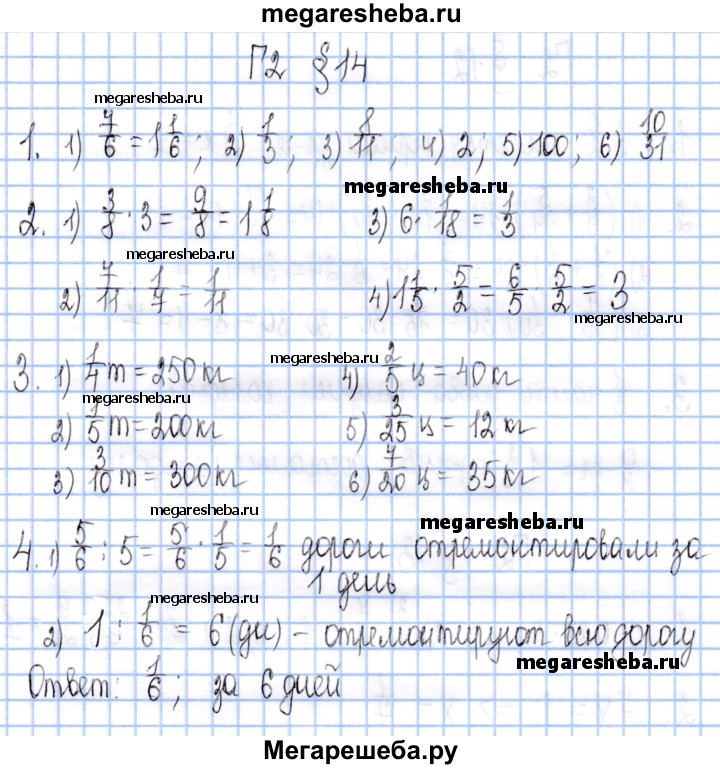 megaresheba.ru
Г2 §14
megaresheba.ru
1. 1) 7/6 = 1 1/6; 2) 1/3; 3) 8/11; 4) 2; 5) 100; 6) 10/31
megaresheba.ru
2. 1) 3/8 · 3 = 9/8 = 1 1/8 3) 6 · 1/18 = 1/3
megaresheba.ru
2) 7/11 · 1/7 = 1/11 4) 1 1/5 · 5/2 = 6/5 · 5/2 = 3
megaresheba.ru
3. 1) 1/4 т = 250 кг 4) 2/5 ц = 40 кг
megaresheba.ru
megaresheba.ru
2) 1/5 т = 200 кг 5) 3/25 ц = 12 кг
3) 3/10 т = 300 кг 6) 7/20 ц = 35 кг
megaresheba.ru
megaresheba.ru
4. 1) 5/6 : 5 = 5/6 · 1/5 = 1/6 дороги отремонтировали за
1 день
megaresheba.ru
2) 1 : 1/6 = 6 (дн) – отремонтируют всю дорогу
megaresheba.ru
Ответ: 1/6; за 6 дней
Мегарешеба.ру